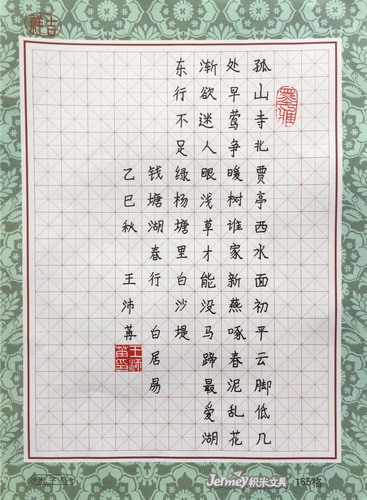 吉祥
孤山寺北贾亭西水面初平云脚低几
处早莺争暖树谁家新燕啄春泥乱花
渐欲迷人眼浅草才能没马蹄最爱湖
东行不足绿杨塘里白沙堤
钱塘湖春行 白居易
乙巳秋 王沛
Jermey 文具 165格